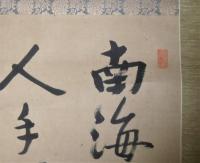 南海
人手